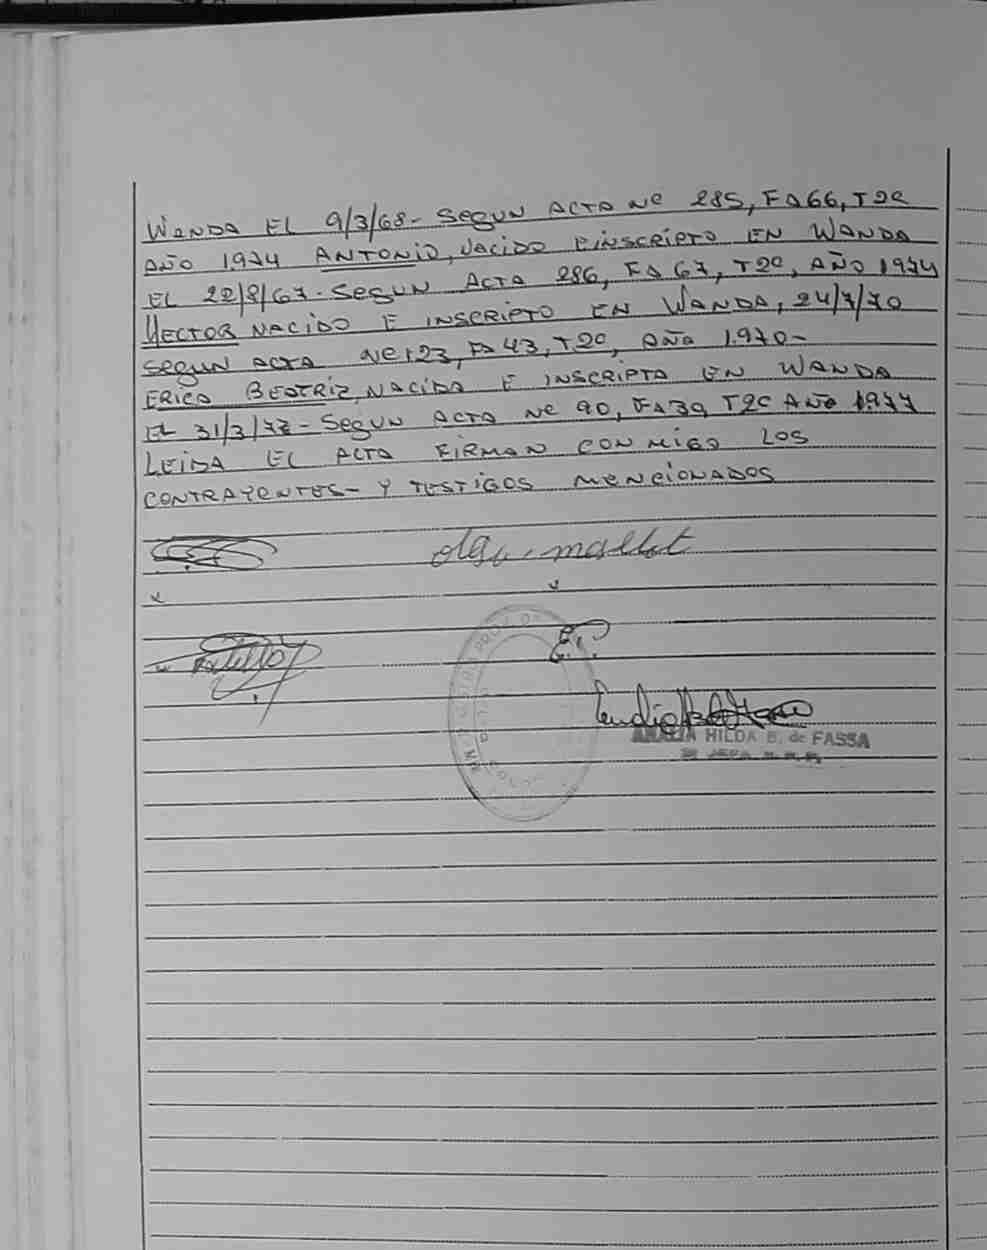 WANDA EL 9/3/68- SEGUN ACTA Nº 285, Fº 66, T 2º
AÑO 1974 ANTONIO, NACIDO E INSCRIPTO EN WANDA
EL 22/8/67- SEGUN ACTA 286, Fº 67, T 2º, AÑO 1974
HECTOR NACIDO E INSCRIPTO EN WANDA, 24/7/70
SEGUN ACTA Nº 123, Fº 43, T 2º, AÑO 1.970-
ERICA BEATRIZ, NACIDA E INSCRIPTA EN WANDA
EL 31/3/77- SEGUN ACTA Nº 90, Fº 39 T 2º AÑO 1977
LEIDA EL ACTA FIRMAN CON MIGO LOS
CONTRAYENTES- Y TESTIGOS MENCIONADOS
olga mallet
HILDA B. de FASSA